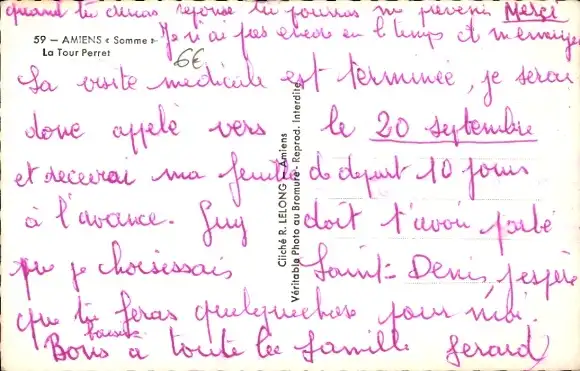 quand tu auras réponse tu pourras me prévenir Merci
59 – AMIENS « Somme »
Je n'ai pas encore eu l temps d
La Tour Perret
6€
La visite médicale est terminée, je serai
donc appelé vers le 20 septembre
et recevrai ma feuille de départ 10 jours
à l'avance. Guy doit t'avoir parlé
que je choisissais Saint-Denis, j'espère
que tu feras quelquechose pour moi.
Bons baisers à toute la famille Gerard
Cliché R. LELONG – Amiens
Véritable Photo au Bromure - Reprod. Interdite